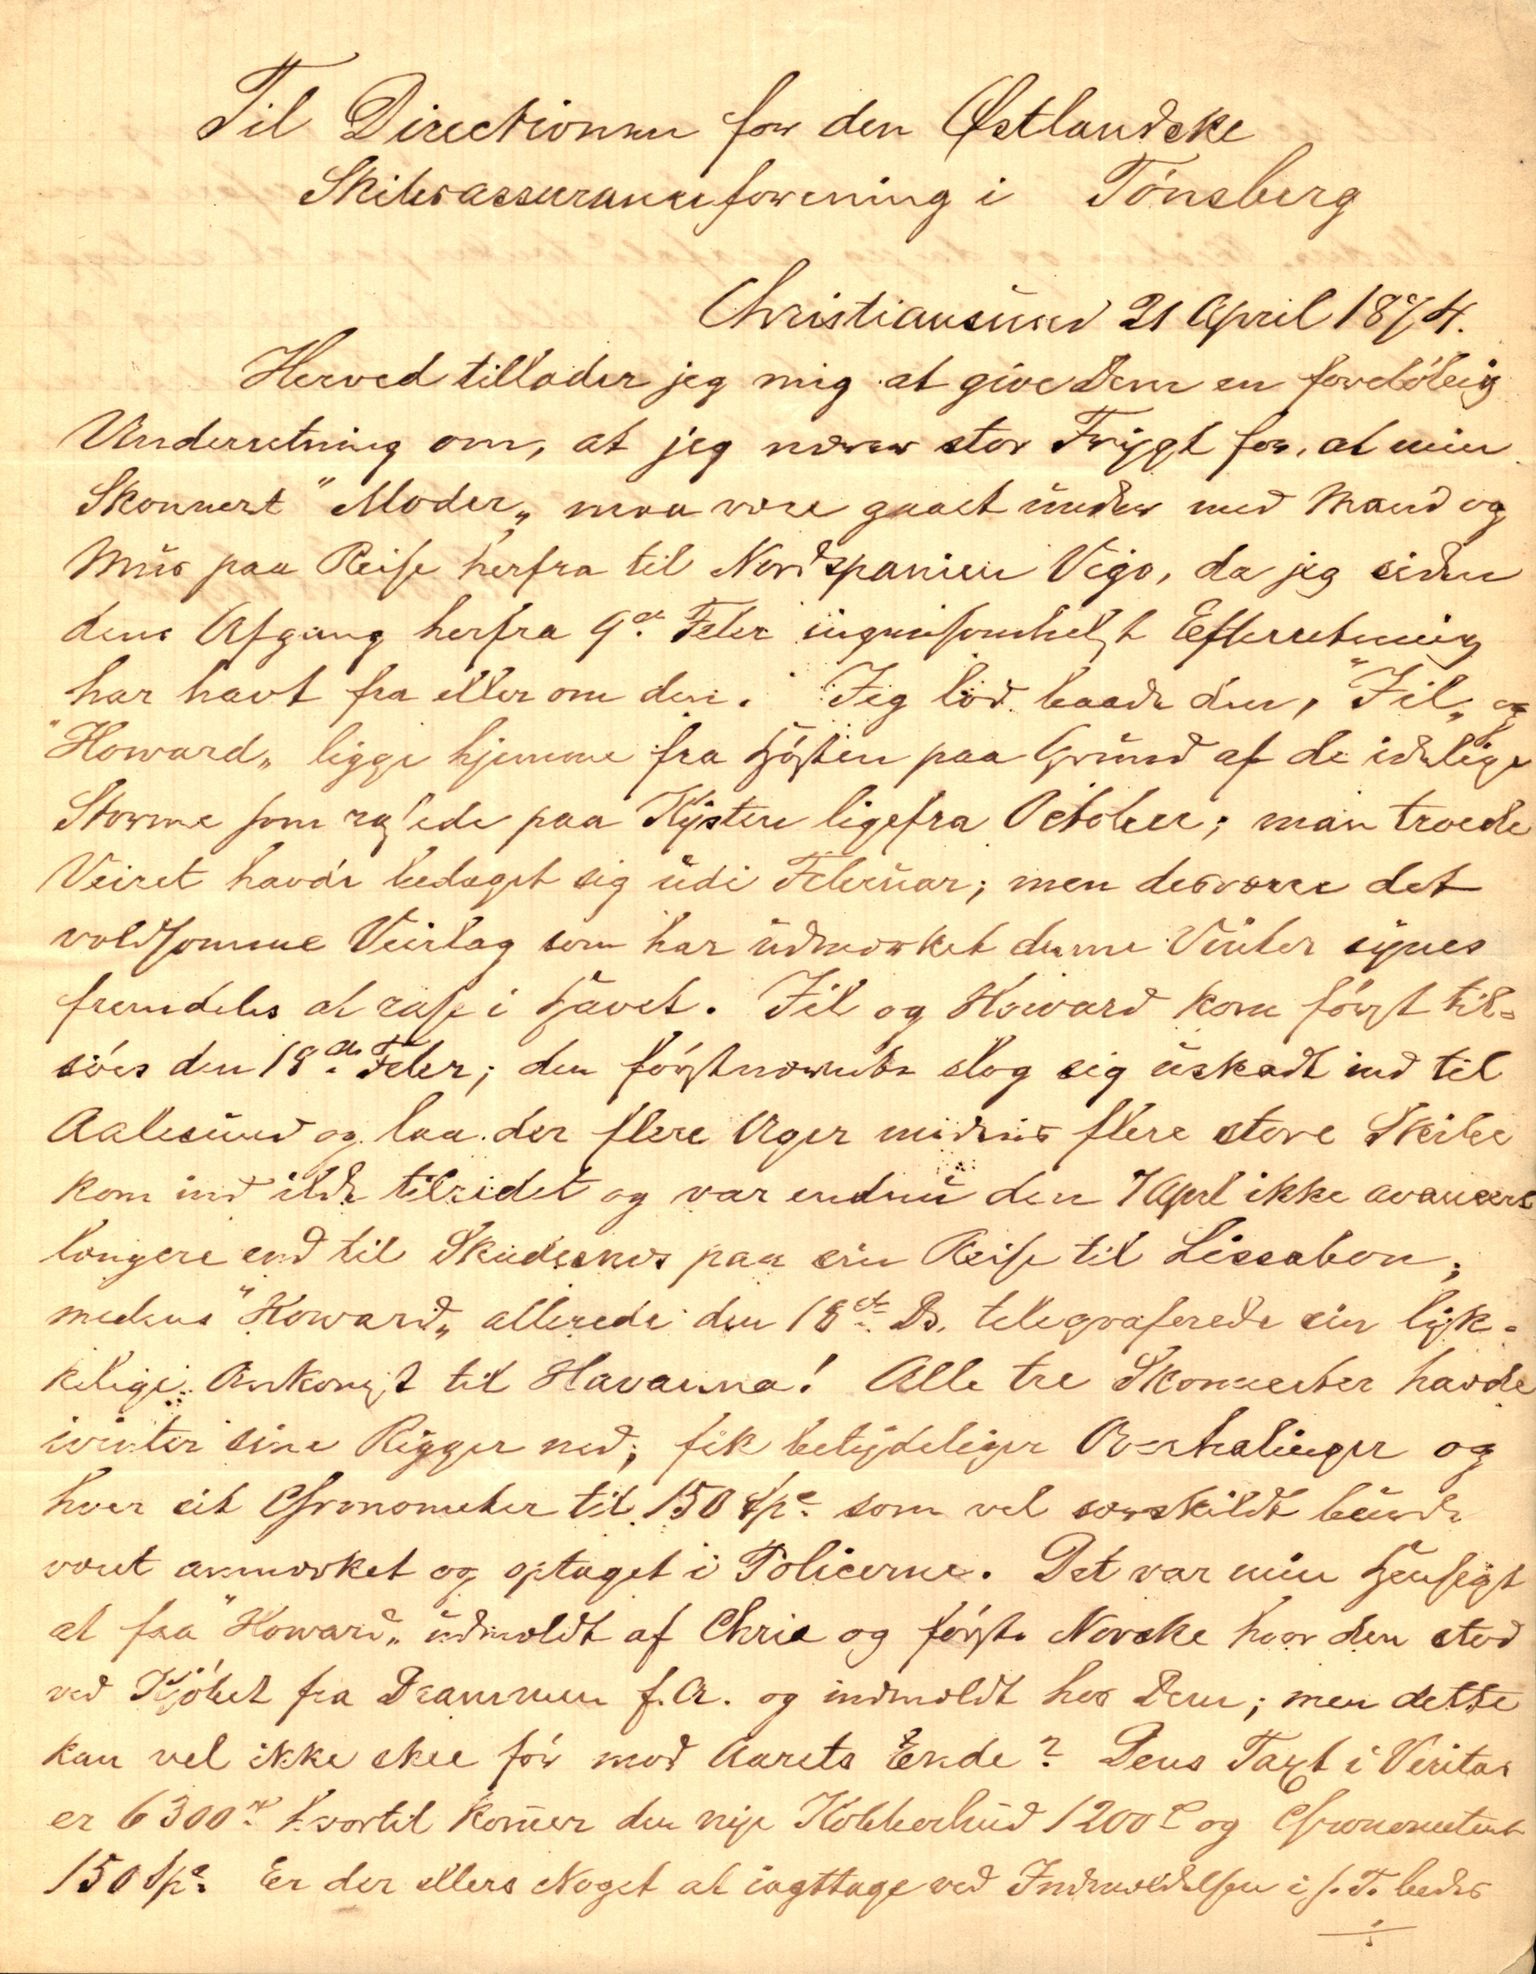 Til Directionen for den Østlandske
Skibsassuranceforening i Tönsberg
Christiansund 21 April 1874.
Herved tillader jeg mig at give Dem en foreløbig
Underretning om, at jeg nærer stor Frygt for, at min
Skonnert "Moder" maa være gaaet under med Mand og
Muus paa Reise herfra til Nordspanien Vigo, da jeg siden
dens Afgang herfra 9de Febr ingensomhelst Efterretning
har havt fra eller om den. Jeg lod baade den, "Fil" og
"Howard" ligge hjemme fra Høsten paa Grund af de idelige
Storme som rasede paa Kysten ligefra October; man troede
Veiret havde bedaget sig udi Februar; men desværre det
voldsomme Veirlag som har udmærket denne Vinter synes
fremdeles at rase i Havet. Fil og Howard kom først til-
söes den 18de Febr; den førstnævnte slog sig uskadt ind til
Aalesund og laa der flere Uger medens flere store Skibe
kom ind ilde tilredet og var endnu den 7 April ikke avanceret
længere end til Skudesnæs paa sin Reise til Lissabon;
medens "Howard" allerede den 18de Ds. telegraferede sin lyk-
kelige Ankomst til Havanna! Alle tre Skonnerter havde
ivinter sine Rigger ned; fik betydelige Overhalinger og
hver sit Chronometer til 150 Spd som vel særskildt burde
været anmærket og optaget i Policerne. Det var min Hensigt
at faa "Howard" udmeldt af Chria og første Norske hvor den stod
ved Kjøbet fra Drammen f.A. og indmeldt hos Dem; men dette
kan vel ikke skee før mod Aarets Ende? Dens Taxt i Veritas
er 6300 hvortil kommer den nye Kobberhud 1200 og Chronometeret
150 Spd. Er der ellers Noget at iagttage ved Indmeldelsen i s. T. bedes